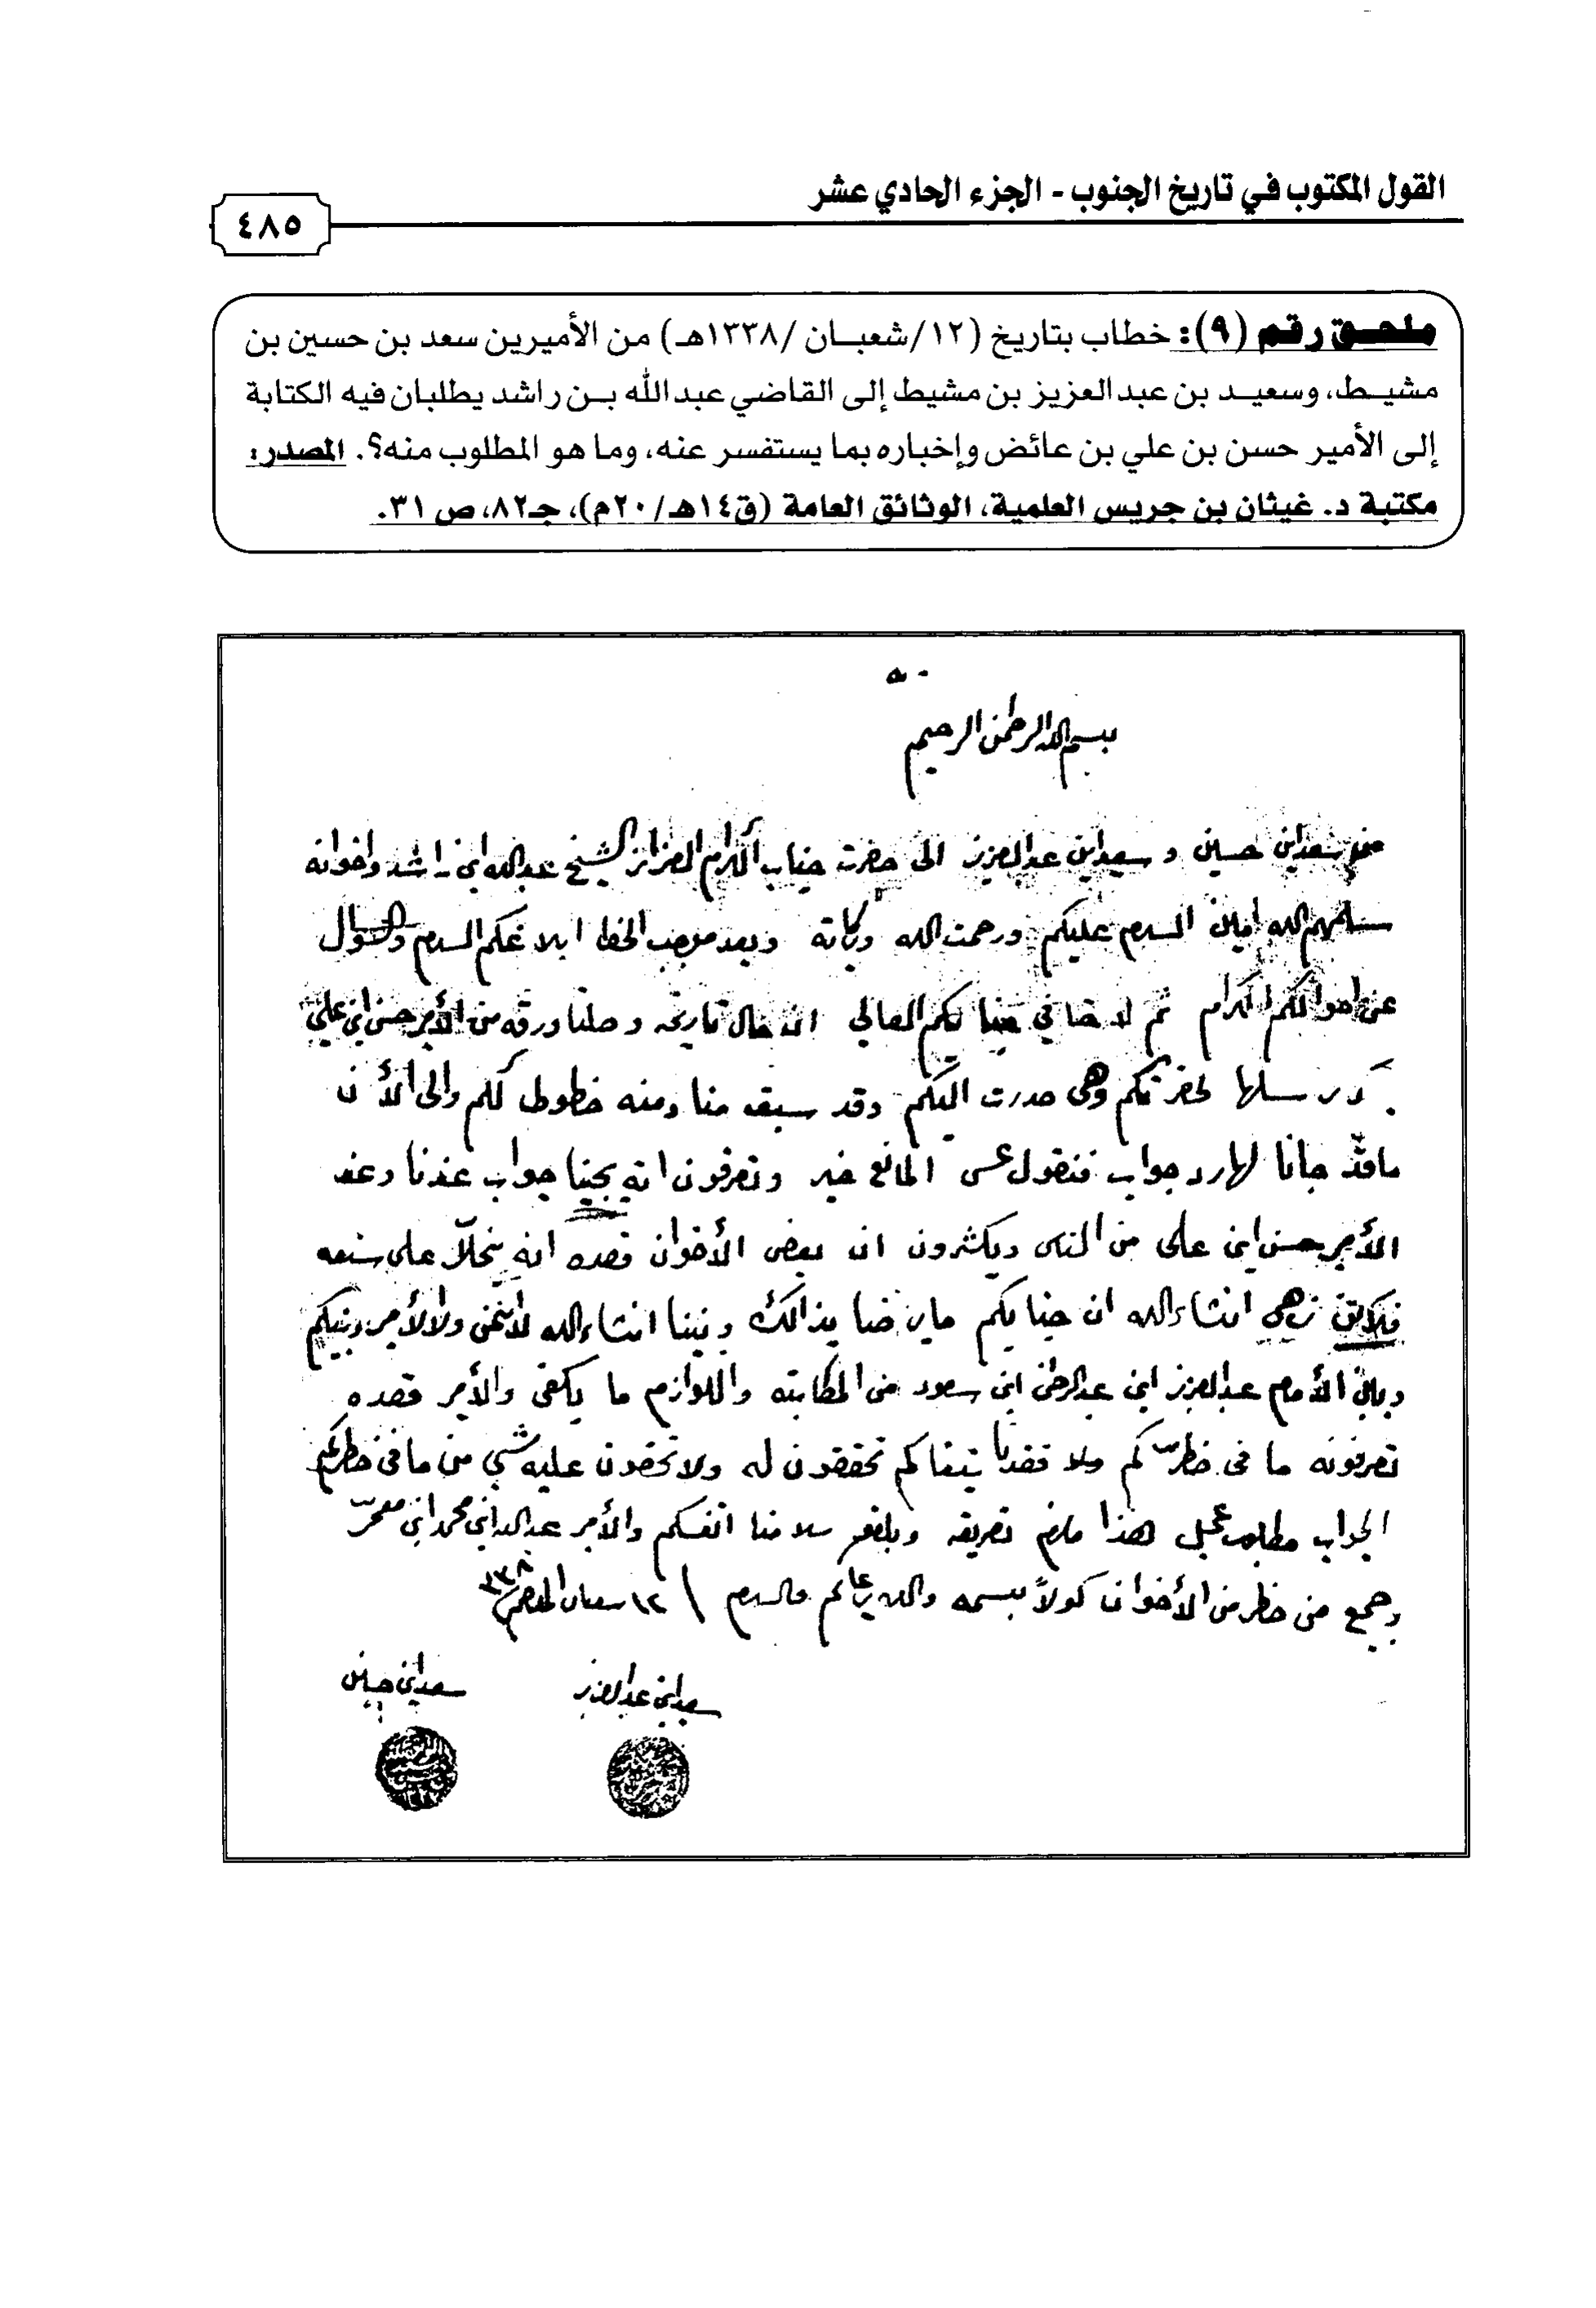 القول المكتوب في تاريخ الجنوب - الجزء الحادي عشر
٤٨٥
ملحق رقم (٩): خطاب بتاريخ (١٢/شعبان /١٣٣٨هـ) من الأميرين سعد بن حسين بن
مشيط، وسعيد بن عبد العزيز بن مشيط إلى القاضي عبد الله بن راشد يطلبان فيه الكتابة
إلى الأمير حسن بن علي بن عائض وإخباره بما يستفسر عنه، وما هو المطلوب منه؟. المصدر:
مكتبة د. غيثان بن جريس العلمية، الوثائق العامة (ق١٤هـ/٢٠م)، جـ٨٢، ص ٣١.
بسم الله الرحمن الرحيم
من سعد ابن حسين و سعيد ابن عبد العزيز الى حضرت جناب الكرام العزاز الشيخ عبد الله ابن راشد واخوانه
سلمهم الله امين السلام عليكم ورحمت الله وبركاته وبعد موجب الخط ابلاغكم السلام والسؤال
عن احوالكم الكرام ثم لا خفا في جنابكم العالي ان حال تاريخه وصلنا ورقه من الأمير حسن ابن علي
لحضرتكم وهي صدرت اليكم وقد سبق منا ومنه خطوط لكم والى الأن
ما قد جانا لها رد جواب فنقول عسى المانع خير وتعرفون انه يجينا جواب عندنا وعند
الأمير حسن ابن على من الناس ويكثرون ان بعض الأخوان قصده انه
انشاء الله ان جنابكم ما يرضا بذالك ونيتنا انشاء الله لا نحن ولا الأمير وبينكم
وبين الأمام عبد العزيز ابن عبد الرحمن ابن سعود من المكاتبه واللوازم ما يكفى والأمير قصده
تعرفونه ما فى خطركم تحققون له ولا تخفون عليه شي من ما فى خطركم
الجواب مطلوب عجل هذا ما لزم تعريفه وبلغو سلامنا انفسكم والأمير عبد الله ابن محمد ابن معمر
وجميع من خطر من الأخوان كولاً بسمه والله يرعاكم والسلام \ ١٢ شعبان ٣٣٨
سعيد ابن عبد العزيز
سعد ابن حسين